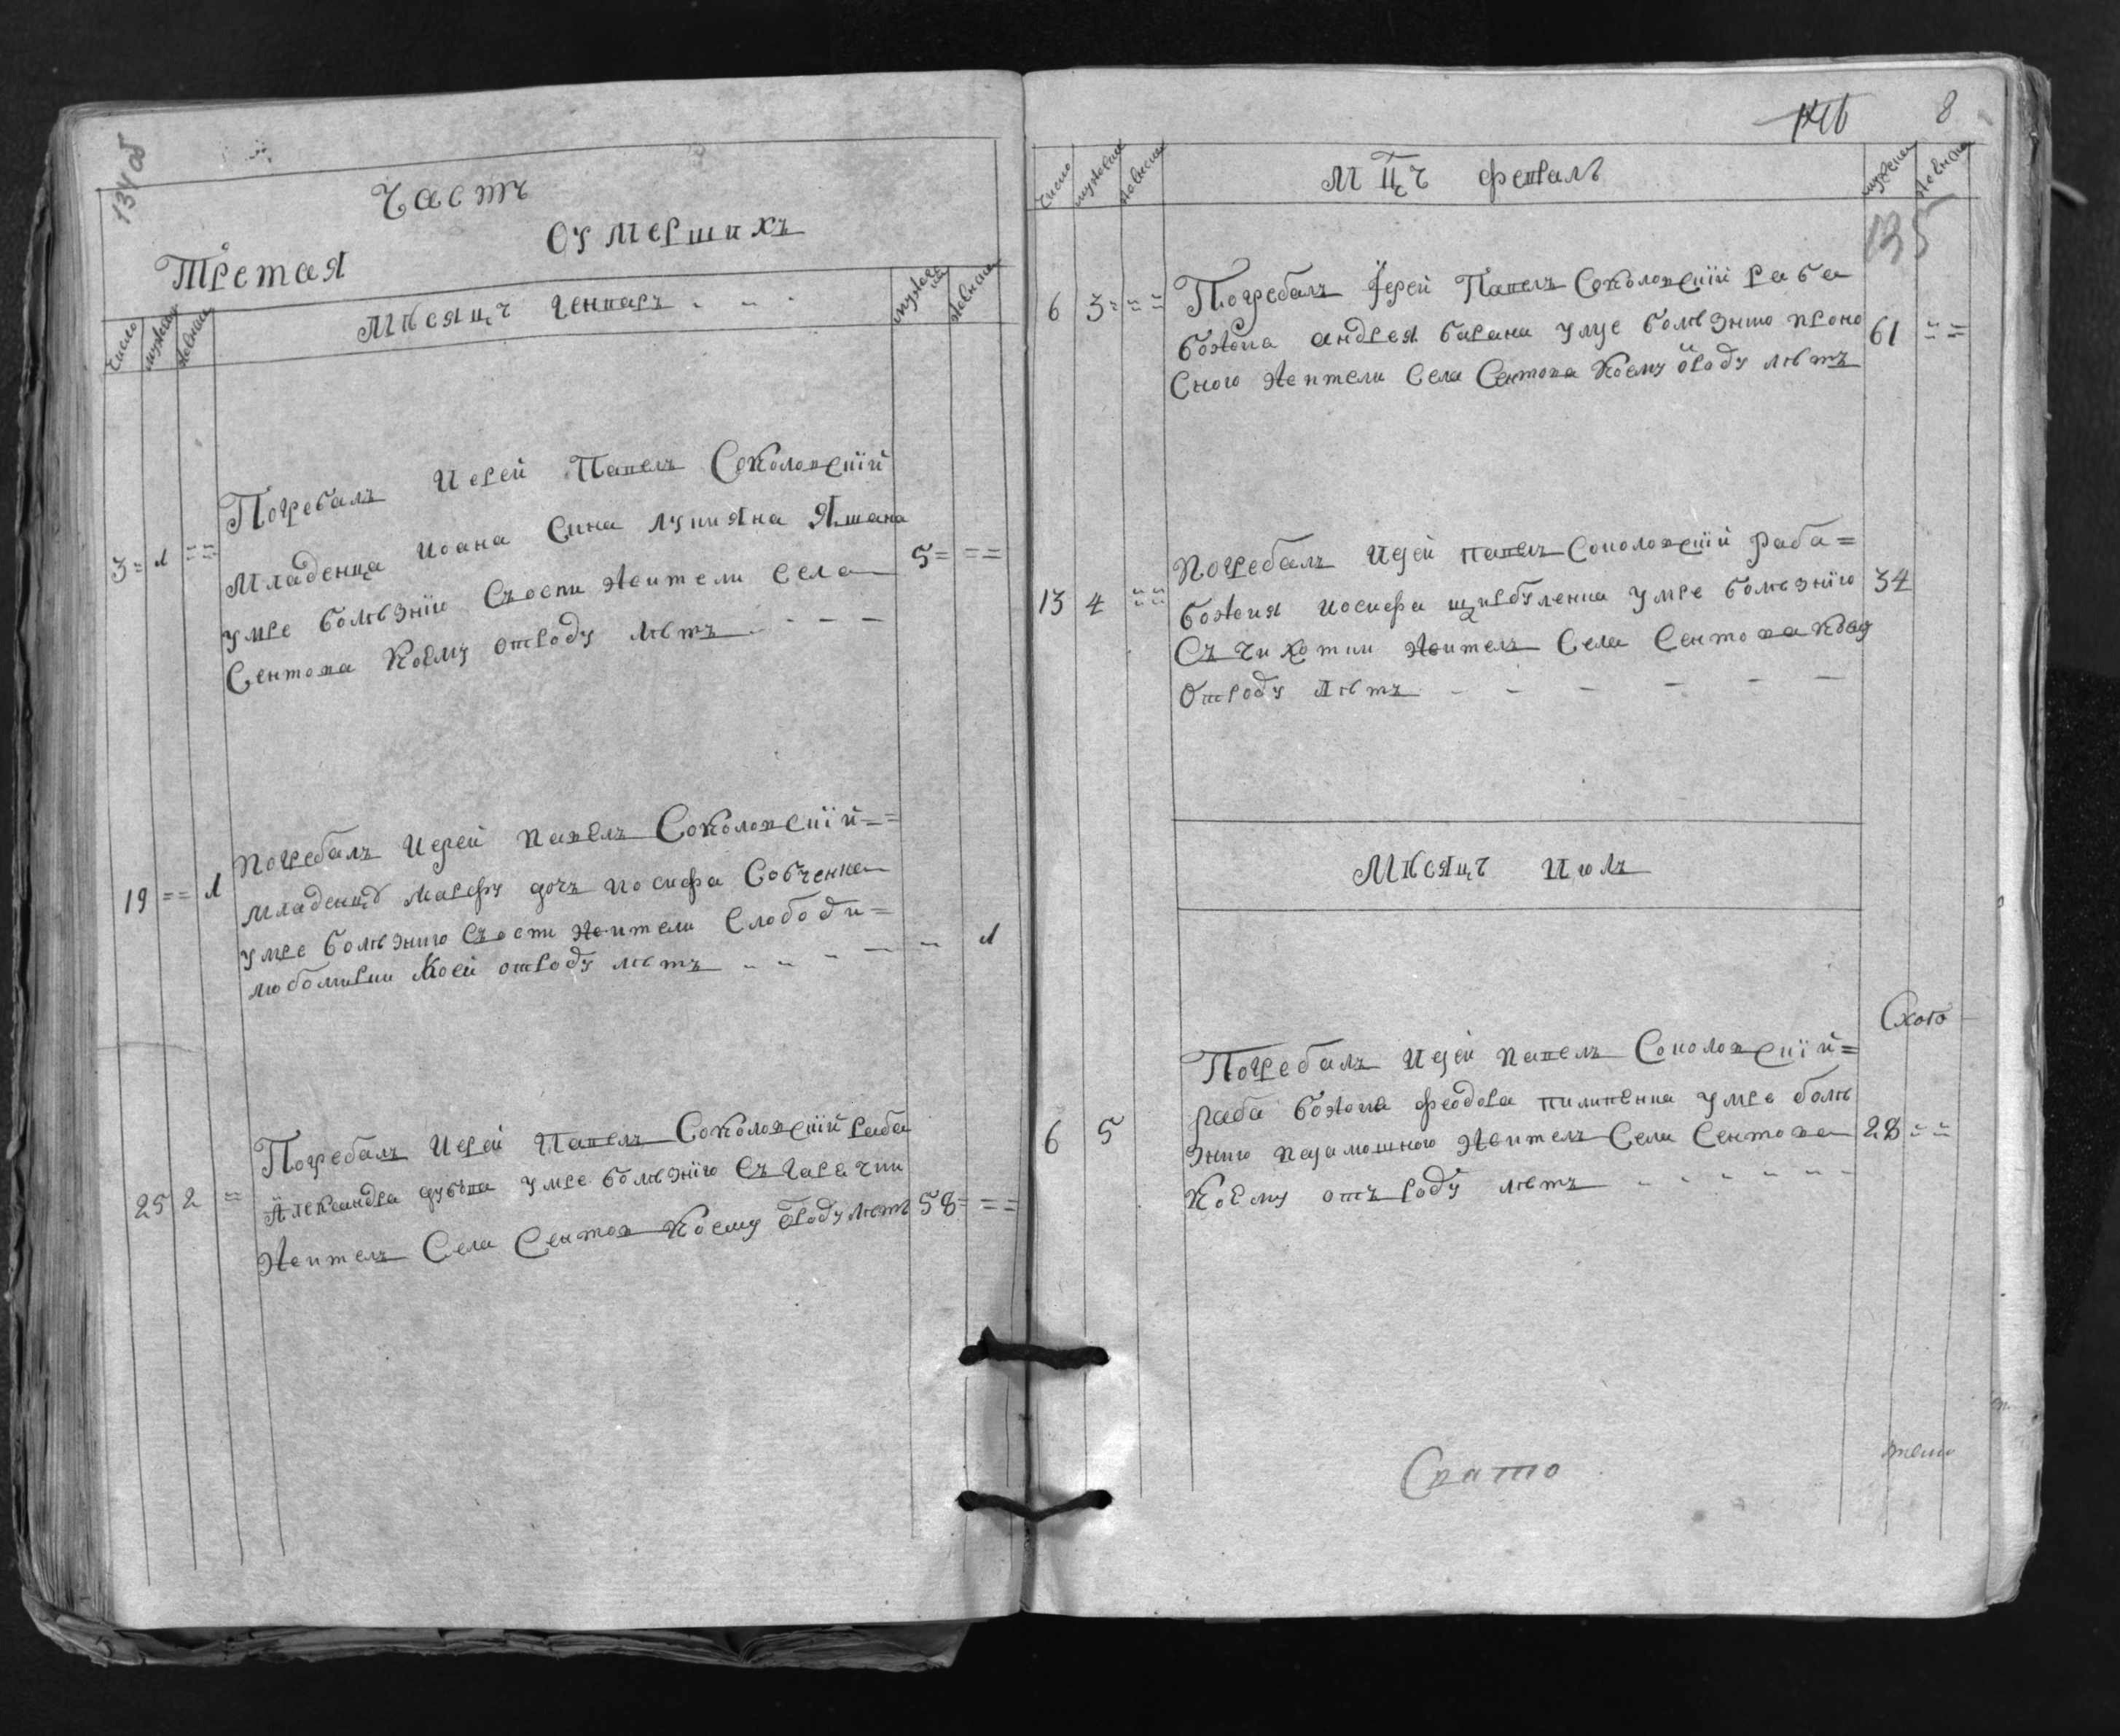 134 об
Часть
Третая
О умершихъ
Число
мужеска
женска
Мѣсяцъ Генваръ
мужеска
женска
3 = 1 ==
Погребалъ Иерей Павелъ Соколовскїй
Младенца Иоана Сина лукияна
умре болѣзнїю Съоспи жителя Села
5 = ==
Сентова Коему отроду лѣтъ
19 == 1
погребалъ Иерей павелъ Соколовскїй =
младенца Марфу дочъ иосифа Совченка
умре болѣзнию Съоспи жителя Слободи =
любомирки Коей отроду лѣтъ
1
Погребалъ Иерей Павелъ Соколовскїй раба
25 2 =
Александра умре болѣзнїю Съ Гарачки
житель Села Сентов Коему ѿроду лѣтъ
58 = ==
8
Число
мужеска
женска
мц҃ъ февралъ
мужеска
женска
135
6 3 = ==
Погребалъ Їерей Павелъ Соколовскїй раба
божїа андрея барана умре болѣзнию проно
61 ==
Сного жителя Села Сентова Коему ѿроду лѣтъ
погребалъ Иерей павелъ Соколовскїй раба =
13 4 ==
божия иосифа умре болѣзнїю
34
Съ чихотки житель Села Сентова
отроду лѣтъ
Мѣсяцъ Июлъ
Погребалъ Иерей павелъ Соколовскїй =
раба божїа феодора пилипенка умре болѣ
6 5
знию житель Села Сентова
28 ==
Коему отъ роду лѣтъ